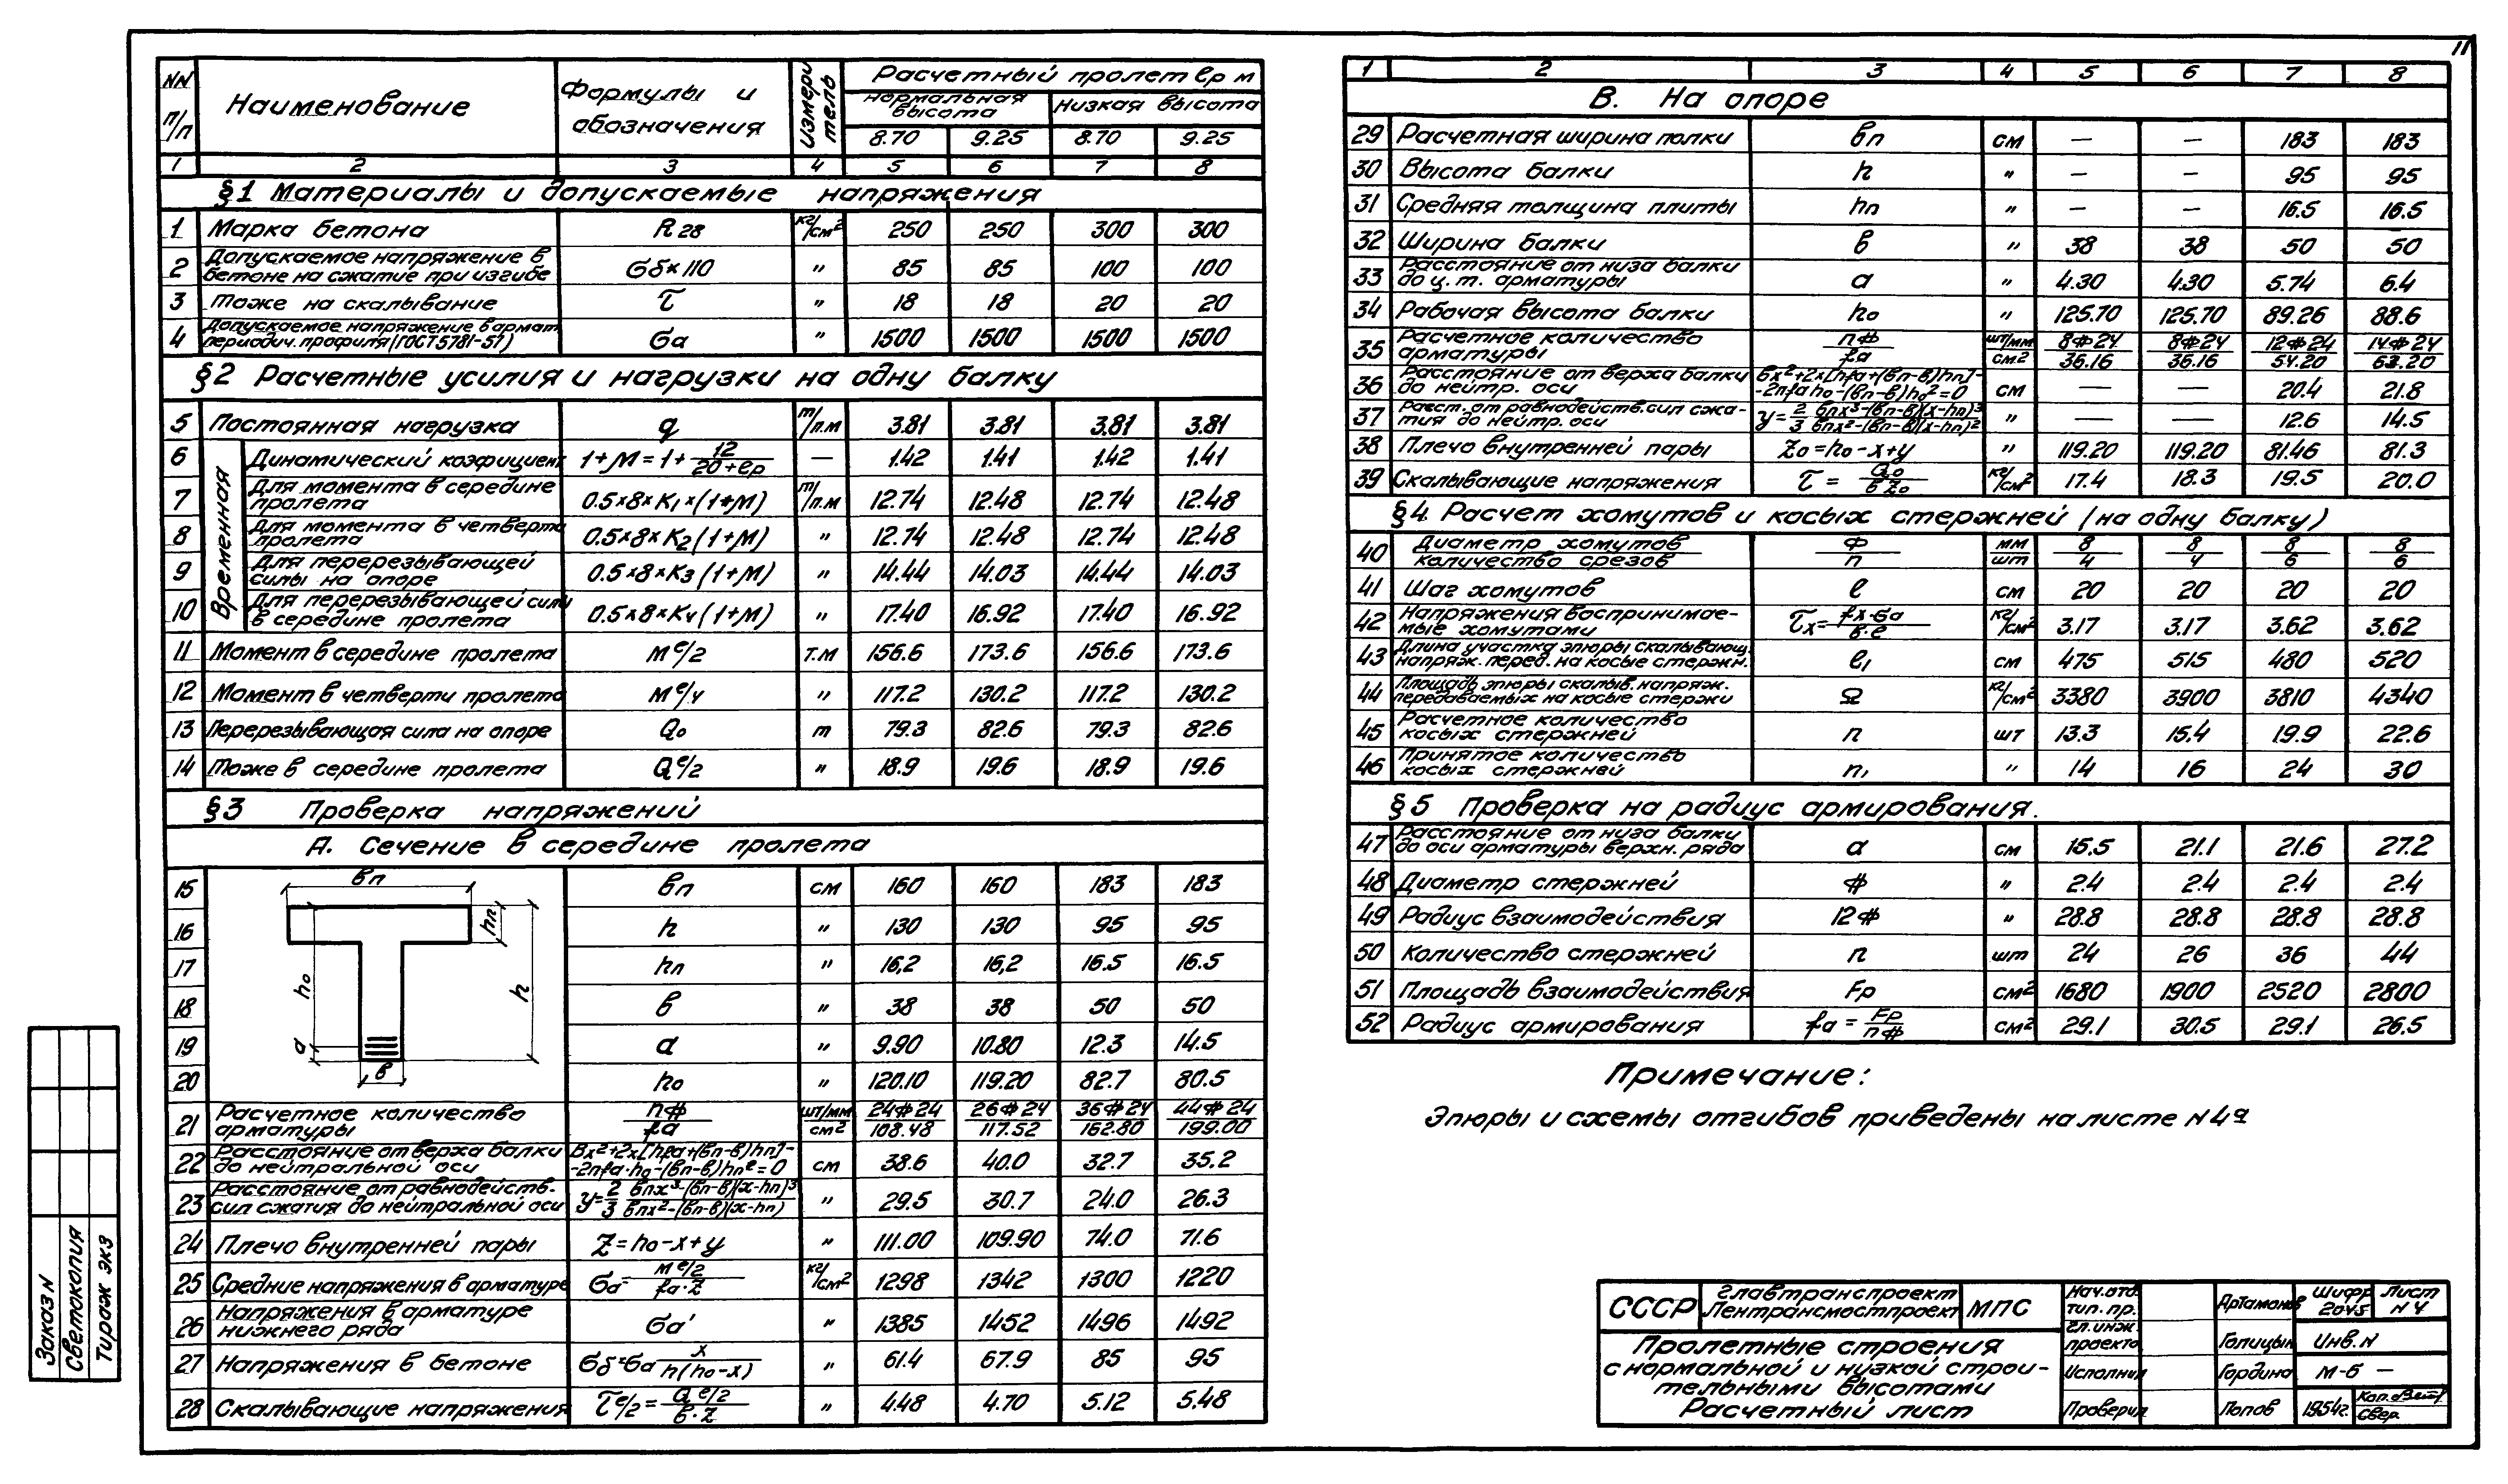 11
NN п/п | Наименование | Формулы и обозначения | Измеритель | Расчетный пролет ℓр м
нормальная высота | Низкая высота
8.70 | 9.25 | 8.70 | 9.25
1 | 2 | 3 | 4 | 5 | 6 | 7 | 8
§1 Материалы и допускаемые напряжения
1 | Марка бетона | R28 | кг/см² | 250 | 250 | 300 | 300
2 | Допускаемое напряжение в бетоне на сжатие при изгибе | бб×110 | " | 85 | 85 | 100 | 100
3 | Тоже на скалывание | τ | " | 18 | 18 | 20 | 20
4 | Допускаемое напряжение в армат. периодич. профиля (ГОСТ 5781-51) | бa | " | 1500 | 1500 | 1500 | 1500
§2 Расчетные усилия и нагрузки на одну балку
5 | Постоянная нагрузка | q | т/п.м | 3.81 | 3.81 | 3.81 | 3.81
Временная
6 | Динамический коэфициент | 1+М=1+12/(20+ℓр) | — | 1.42 | 1.41 | 1.42 | 1.41
7 | Для момента в середине пролета | 0.5×8×К₁×(1+М) | т/п.м | 12.74 | 12.48 | 12.74 | 12.48
8 | Для момента в четверти пролета | 0.5×8×К2(1+М) | " | 12.74 | 12.48 | 12.74 | 12.48
9 | Для перерезывающей силы на опоре | 0.5×8×К3(1+М) | " | 14.44 | 14.03 | 14.44 | 14.03
10 | Для перерезывающей силы в середине пролета | 0.5×8×К4(1+М) | " | 17.40 | 16.92 | 17.40 | 16.92
11 | Момент в середине пролета | М ℓ/2 | т.м | 156.6 | 173.6 | 156.6 | 173.6
12 | Момент в четверти пролета | М ℓ/4 | " | 117.2 | 130.2 | 117.2 | 130.2
13 | Перерезывающая сила на опоре | Qо | т | 79.3 | 82.6 | 79.3 | 82.6
14 | Тоже в середине пролета | Q ℓ/2 | " | 18.9 | 19.6 | 18.9 | 19.6
§3 Проверка напряжений
А. Сечение в середине пролета
вп hп hо h а в
15 | вп | см | 160 | 160 | 183 | 183
16 | h | " | 130 | 130 | 95 | 95
17 | hп | " | 16,2 | 16,2 | 16.5 | 16.5
18 | в | " | 38 | 38 | 50 | 50
19 | а | " | 9.90 | 10.80 | 12.3 | 14.5
20 | hо | " | 120.10 | 119.20 | 82.7 | 80.5
21 | Расчетное количество арматуры | nф/fа | шт/мм см² | 24ф24/108.48 | 26ф24/117.52 | 36ф24/162.80 | 44ф24/199.00
22 | Расстояние от верха балки до нейтральной оси | Вх²+2х[hfа+(вп-в)hп]-2nfа·hо-(вп-в)hп²=0 | см | 38.6 | 40.0 | 32.7 | 35.2
23 | Расстояние от равнодейств. сил сжатия до нейтральной оси | y=2/3 (впх³-(вп-в)(х-hп)³)/(впх²-(вп-в)(х-hп)) | " | 29.5 | 30.7 | 24.0 | 26.3
24 | Плечо внутренней пары | Z=hо-х+y | " | 111.00 | 109.90 | 74.0 | 71.6
25 | Средние напряжения в арматуре | бa=М ℓ/2 / fа·Z | кг/см² | 1298 | 1342 | 1300 | 1220
26 | Напряжения в арматуре нижнего ряда | бa' | " | 1385 | 1452 | 1496 | 1492
27 | Напряжения в бетоне | бб=бa х/n(hо-х) | " | 61.4 | 67.9 | 85 | 95
28 | Скалывающие напряжения | τ ℓ/2 = Q ℓ/2 / в·Z | " | 4.48 | 4.70 | 5.12 | 5.48
1 | 2 | 3 | 4 | 5 | 6 | 7 | 8
В. На опоре
29 | Расчетная ширина полки | вп | см | — | — | 183 | 183
30 | Высота балки | h | " | — | — | 95 | 95
31 | Средняя толщина плиты | hп | " | — | — | 16.5 | 16.5
32 | Ширина балки | в | " | 38 | 38 | 50 | 50
33 | Расстояние от низа балки до ц.т. арматуры | а | " | 4.30 | 4.30 | 5.74 | 6.4
34 | Рабочая высота балки | hо | " | 125.70 | 125.70 | 89.26 | 88.6
35 | Расчетное количество арматуры | nф/fа | шт/мм см² | 8ф24/36.16 | 8ф24/36.16 | 12ф24/54.20 | 14ф24/63.20
36 | Расстояние от верха балки до нейтр. оси | вх²+2х[hfа+(вп-в)hп]-2nfаhо-(вп-в)hо²=0 | см | — | — | 20.4 | 21.8
37 | Расст. от равнодейств. сил сжатия до нейтр. оси | y=2/3 (впх³-(вп-в)(х-hп)³)/(впх²-(вп-в)(х-hп)²) | " | — | — | 12.6 | 14.5
38 | Плечо внутренней пары | Zо=hо-х+y | " | 119.20 | 119.20 | 81.46 | 81.3
39 | Скалывающие напряжения | τ = Qо/вZо | кг/см² | 17.4 | 18.3 | 19.5 | 20.0
§4 Расчет хомутов и косых стержней (на одну балку)
40 | Диаметр хомутов / количество срезов | ф/n | мм/шт | 8/4 | 8/4 | 8/6 | 8/6
41 | Шаг хомутов | ℓ | см | 20 | 20 | 20 | 20
42 | Напряжения воспринимаемые хомутами | τх=fх·бa/в·ℓ | кг/см² | 3.17 | 3.17 | 3.62 | 3.62
43 | Длина участка эпюры скалывающ. напряж. перед. на косые стержн. | ℓ₁ | см | 475 | 515 | 480 | 520
44 | Площадь эпюры скалыв. напряж. передаваемых на косые стержни | Ω | кг/см² | 3380 | 3900 | 3810 | 4340
45 | Расчетное количество косых стержней | n | шт | 13.3 | 15.4 | 19.9 | 22.6
46 | Принятое количество косых стержней | n₁ | " | 14 | 16 | 24 | 30
§5 Проверка на радиус армирования.
47 | Расстояние от низа балки до оси арматуры верхн. ряда | а | см | 15,5 | 21.1 | 21.6 | 27.2
48 | Диаметр стержней | ф | " | 2.4 | 2.4 | 2.4 | 2.4
49 | Радиус взаимодействия | 12ф | " | 28.8 | 28.8 | 28.8 | 28.8
50 | Количество стержней | n | шт | 24 | 26 | 36 | 44
51 | Площадь взаимодействия | Fр | см² | 1680 | 1900 | 2520 | 2800
52 | Радиус армирования | fа = Fр/nф | см² | 29.1 | 30.5 | 29.1 | 26.5
Примечание:
Эпюры и схемы отгибов приведены на листе N4а
СССР | Главтранспроект Лентрансмостпроект | МПС
Пролетные строения
с нормальной и низкой строи-
тельными высотами
Расчетный лист
Нач. отд. тип. пр. | Артамонов | Шифр 2045 | Лист N 4
Гл. инж. проекта | Голицын | Инв. N
Исполнил | Гордина | М-б —
Проверил | Попов | 1954г. | Свер.
Заказ N
Светокопия
Тираж экз